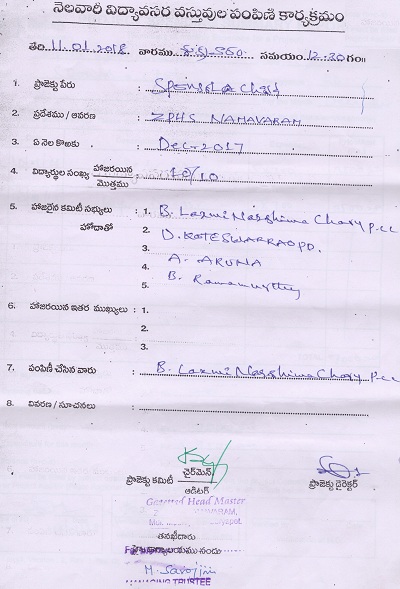 నెలవారి విద్యావసర వస్తువుల పంపిణి కార్యక్రమం
తేది 11.01.2018 వారము సమయం 12.30 గం॥
1. ప్రాజెక్టు పేరు :
2. ప్రదేశము / ఆవరణ : ZPHS NAMAVARAM
3. ఏ నెల కొఱకు : Dec-2017
4. విద్యార్థుల సంఖ్య హాజరయిన / మొత్తము : 10/10
5. హాజరైన కమిటీ సభ్యులు : 1. B. Laxmi Narshima Chary P.CC
హోదాతో 2. D. KOTESWARRAO PD.
3. A. ARUNA
4. B. Ramamurthy
5.
6. హాజరయిన ఇతర ముఖ్యులు : 1.
2.
3.
7. పంపిణీ చేసిన వారు : B. Laxmi Narshima Chary P.CC
8. వివరణ / సూచనలు :
ప్రాజెక్టు కమిటీ చైర్‌మెన్ / ఆడిటర్ ప్రాజెక్టు డైరెక్టర్
Gazetted Head Master
తనఖీదారు
M. Sarojini
MANAGING TRUSTEE